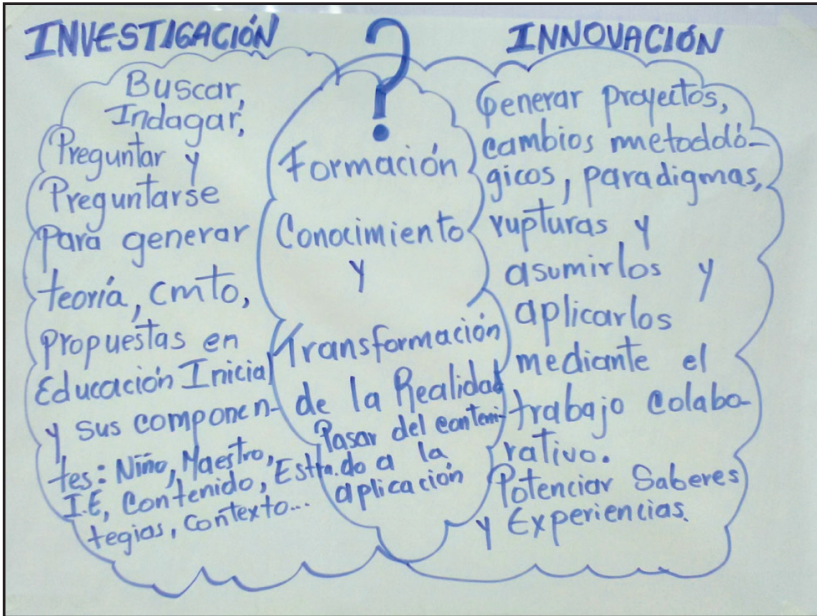 INVESTIGACIÓN
Buscar,
Indagar,
Preguntar y
Preguntarse
Para generar
teoría, cmto,
Propuestas en
Educación Inicial
y sus componen-
tes: Niño, Maestro,
I.E, Contenido, Estra-
tegias, Contexto...
?
Formación
Conocimiento
Y
Transformación
de la Realidad
Pasar del conteni-
do a la
aplicación
INNOVACIÓN
Generar proyectos,
cambios metodoló-
gicos, paradigmas,
rupturas y
asumirlos y
aplicarlos
mediante el
trabajo colabo-
rativo.
Potenciar Saberes
y Experiencias.